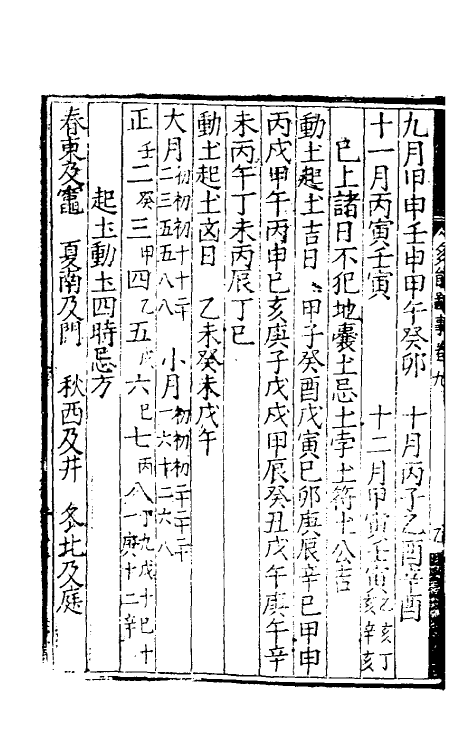 九月甲申壬申甲午癸卯　十月丙子乙酉辛酉
十一月丙寅壬寅　十二月甲寅壬寅乙亥丁亥辛亥
已上諸日不犯地囊土忌土孛土符土公吉
動土起土吉日　甲子癸酉戊寅巳卯庚辰辛巳甲申
丙戌甲午丙申巳亥庚子戊戌甲辰癸丑戊午庚午辛
未丙午丁未丙辰丁巳
動土起土凶日　乙未癸未戊午
大月初二初三初五十五十八廿八　小月初一初六初十廿二廿六廿八
正壬二癸三甲四乙五戊六巳七丙八丁九戊十巳十一庚十二辛
起土動土四時忌方
春東及竈　夏南及門　秋西及井　冬北及庭